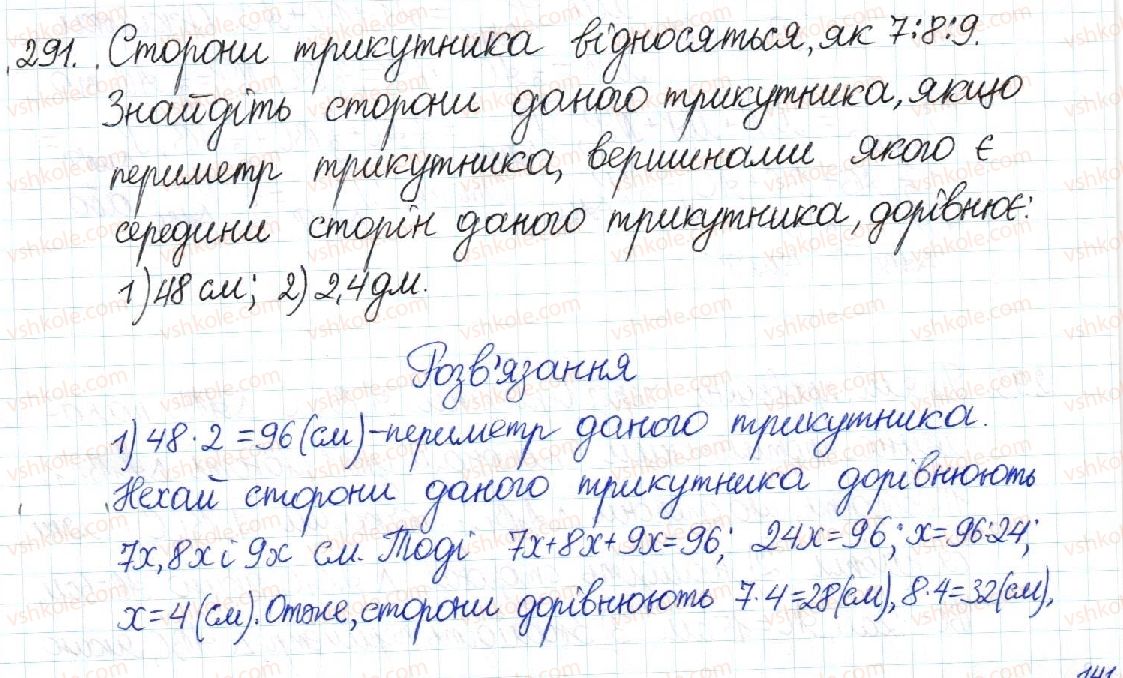 291. Сторони трикутника відносяться, як 7:8:9.
Знайдіть сторони даного трикутника, якщо
периметр трикутника, вершинами якого є
середини сторін даного трикутника, дорівнює:
1) 48 см; 2) 2,4 дм.
Розв'язання
1) 48 · 2 = 96 (см) – периметр даного трикутника.
Нехай сторони даного трикутника дорівнюють
7x, 8x і 9x см. Тоді 7x+8x+9x=96; 24x=96; x=96:24;
x=4 (см). Отже, сторони дорівнюють 7·4=28(см), 8·4=32(см),
141